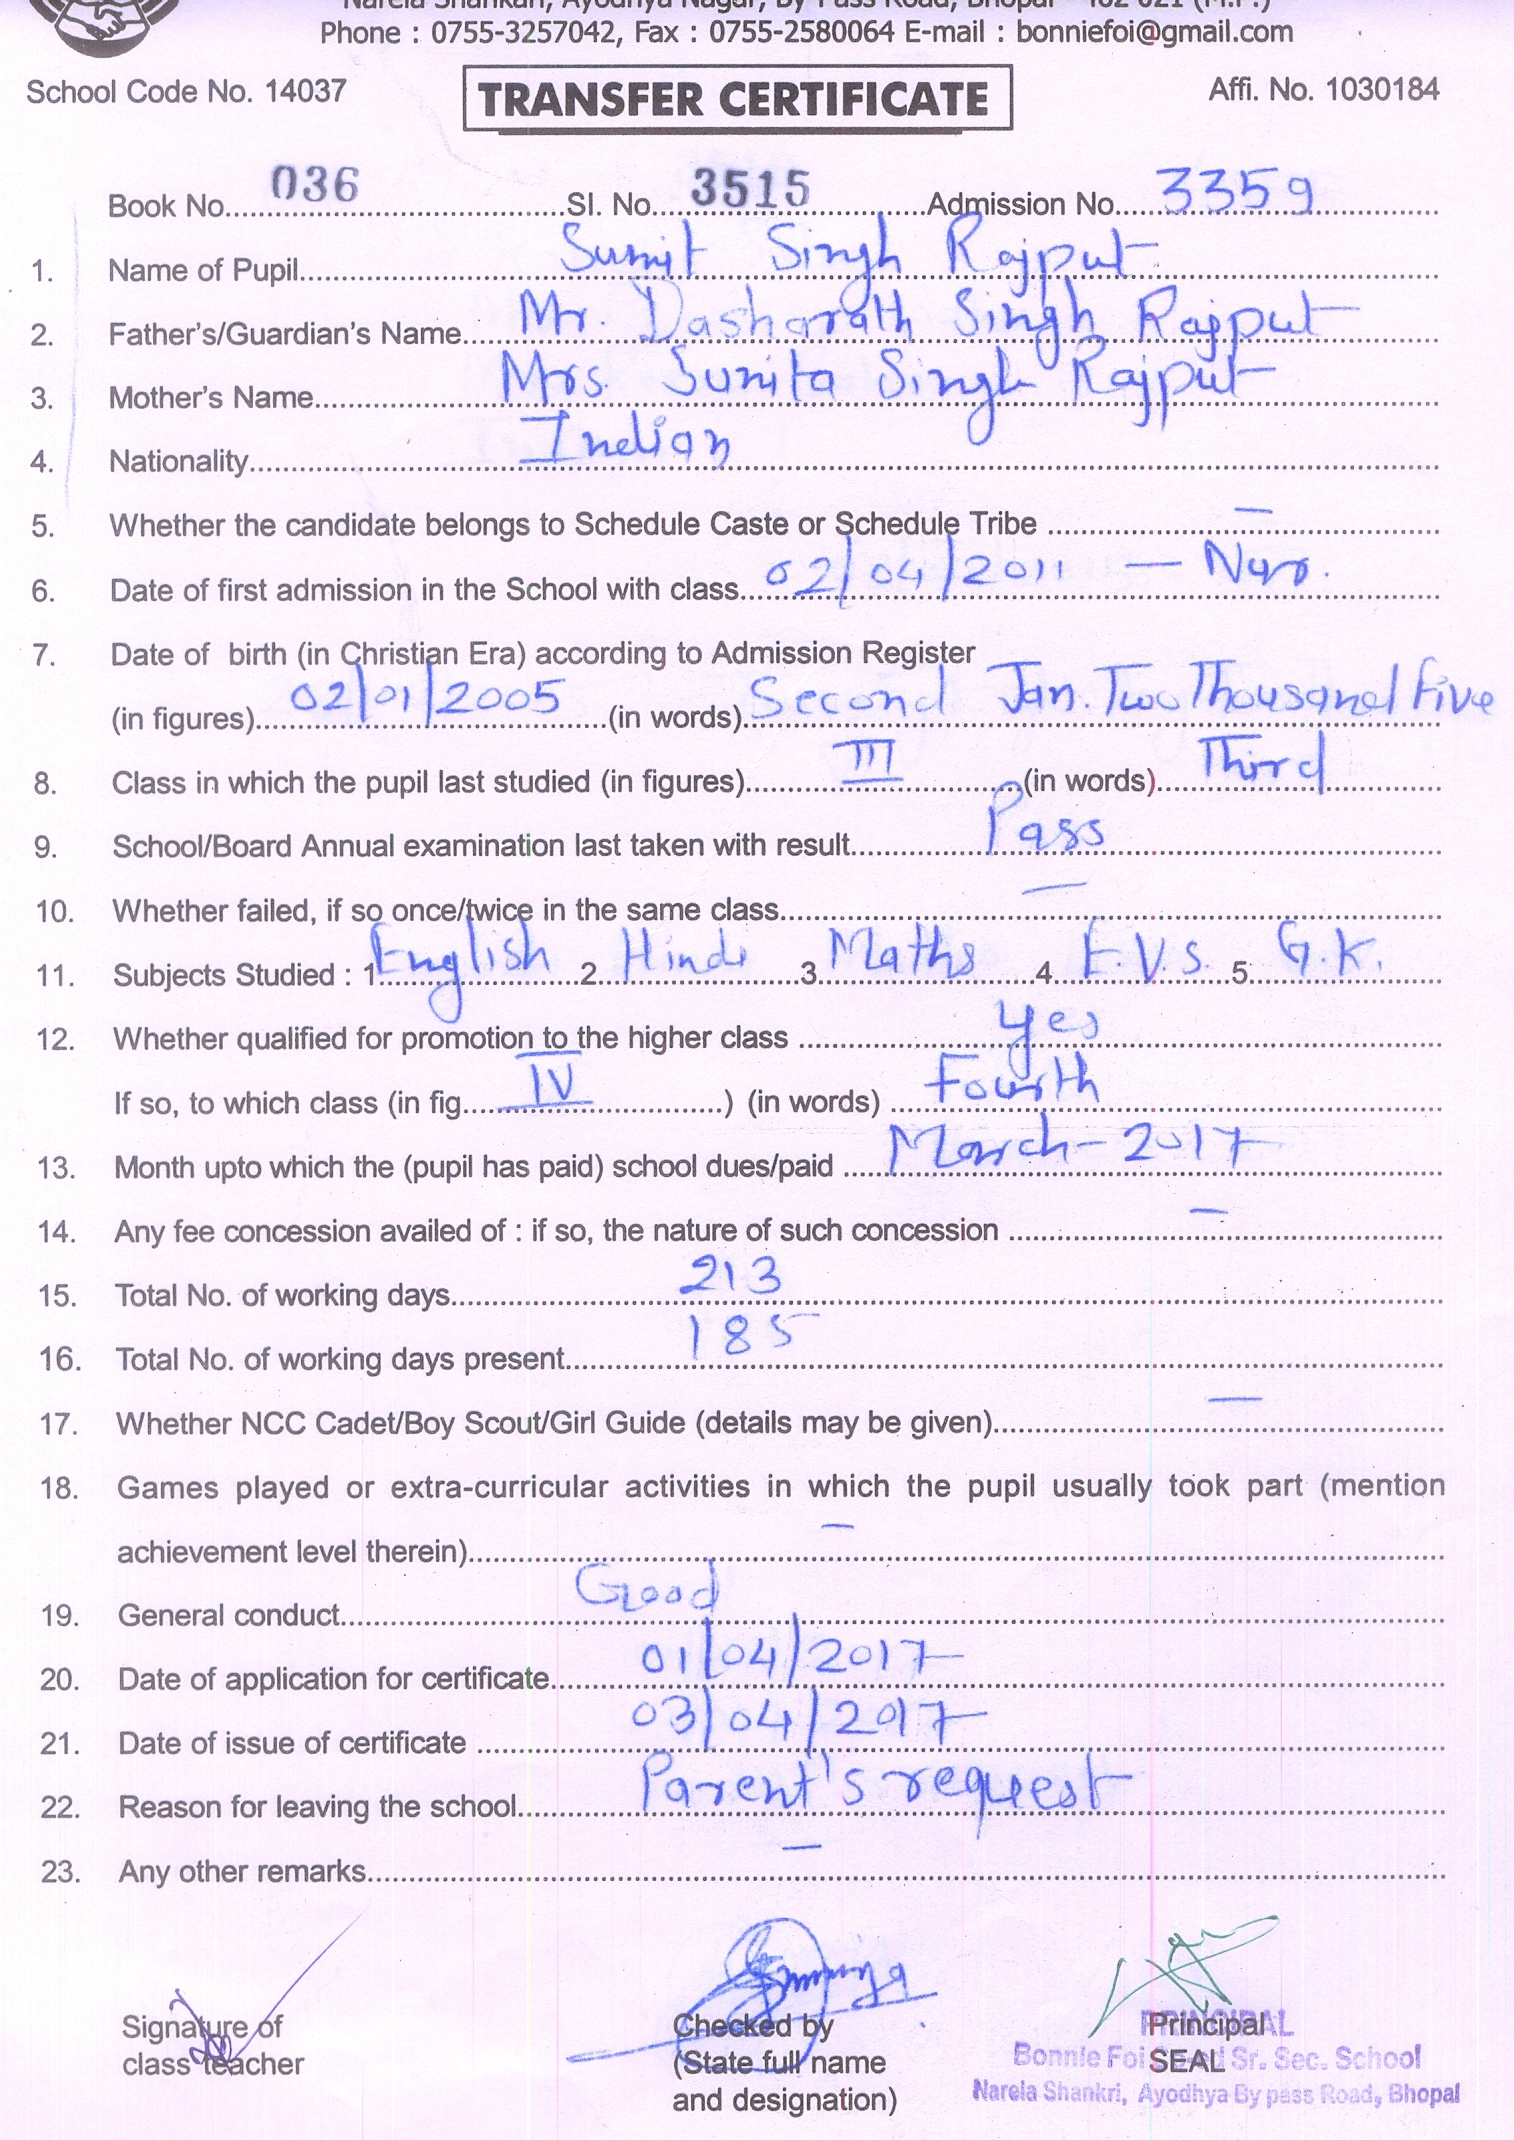 Narela Shankari, Ayodhya Nagar, By Pass Road, Bhopal - 462 021 (M.P.)
Phone : 0755-3257042, Fax : 0755-2580064 E-mail : bonniefoi@gmail.com
School Code No. 14037 TRANSFER CERTIFICATE Affi. No. 1030184
Book No. 036 Sl. No. 3515 Admission No. 3359
1. Name of Pupil Sumit Singh Rajput
2. Father's/Guardian's Name Mr. Dasharath Singh Rajput
3. Mother's Name Mrs. Sunita Singh Rajput
4. Nationality Indian
5. Whether the candidate belongs to Schedule Caste or Schedule Tribe —
6. Date of first admission in the School with class 02/04/2011 — Nur.
7. Date of birth (in Christian Era) according to Admission Register
(in figures) 02/01/2005 (in words) Second Jan. Two Thousand Five
8. Class in which the pupil last studied (in figures) III (in words) Third
9. School/Board Annual examination last taken with result Pass
10. Whether failed, if so once/twice in the same class —
11. Subjects Studied : 1 English 2 Hindi 3 Maths 4 E.V.S. 5 G.K.
12. Whether qualified for promotion to the higher class Yes
If so, to which class (in fig. IV ) (in words) Fourth
13. Month upto which the (pupil has paid) school dues/paid March - 2017
14. Any fee concession availed of : if so, the nature of such concession —
15. Total No. of working days 213
16. Total No. of working days present 185
17. Whether NCC Cadet/Boy Scout/Girl Guide (details may be given) —
18. Games played or extra-curricular activities in which the pupil usually took part (mention
achievement level therein) —
19. General conduct Good
20. Date of application for certificate 01/04/2017
21. Date of issue of certificate 03/04/2017
22. Reason for leaving the school Parent's request
23. Any other remarks —
Signature of
class teacher
Checked by
(State full name
and designation)
Principal
SEAL
PRINCIPAL
Bonnie Foi Sr. Sec. School
Narela Shankri, Ayodhya By pass Road, Bhopal